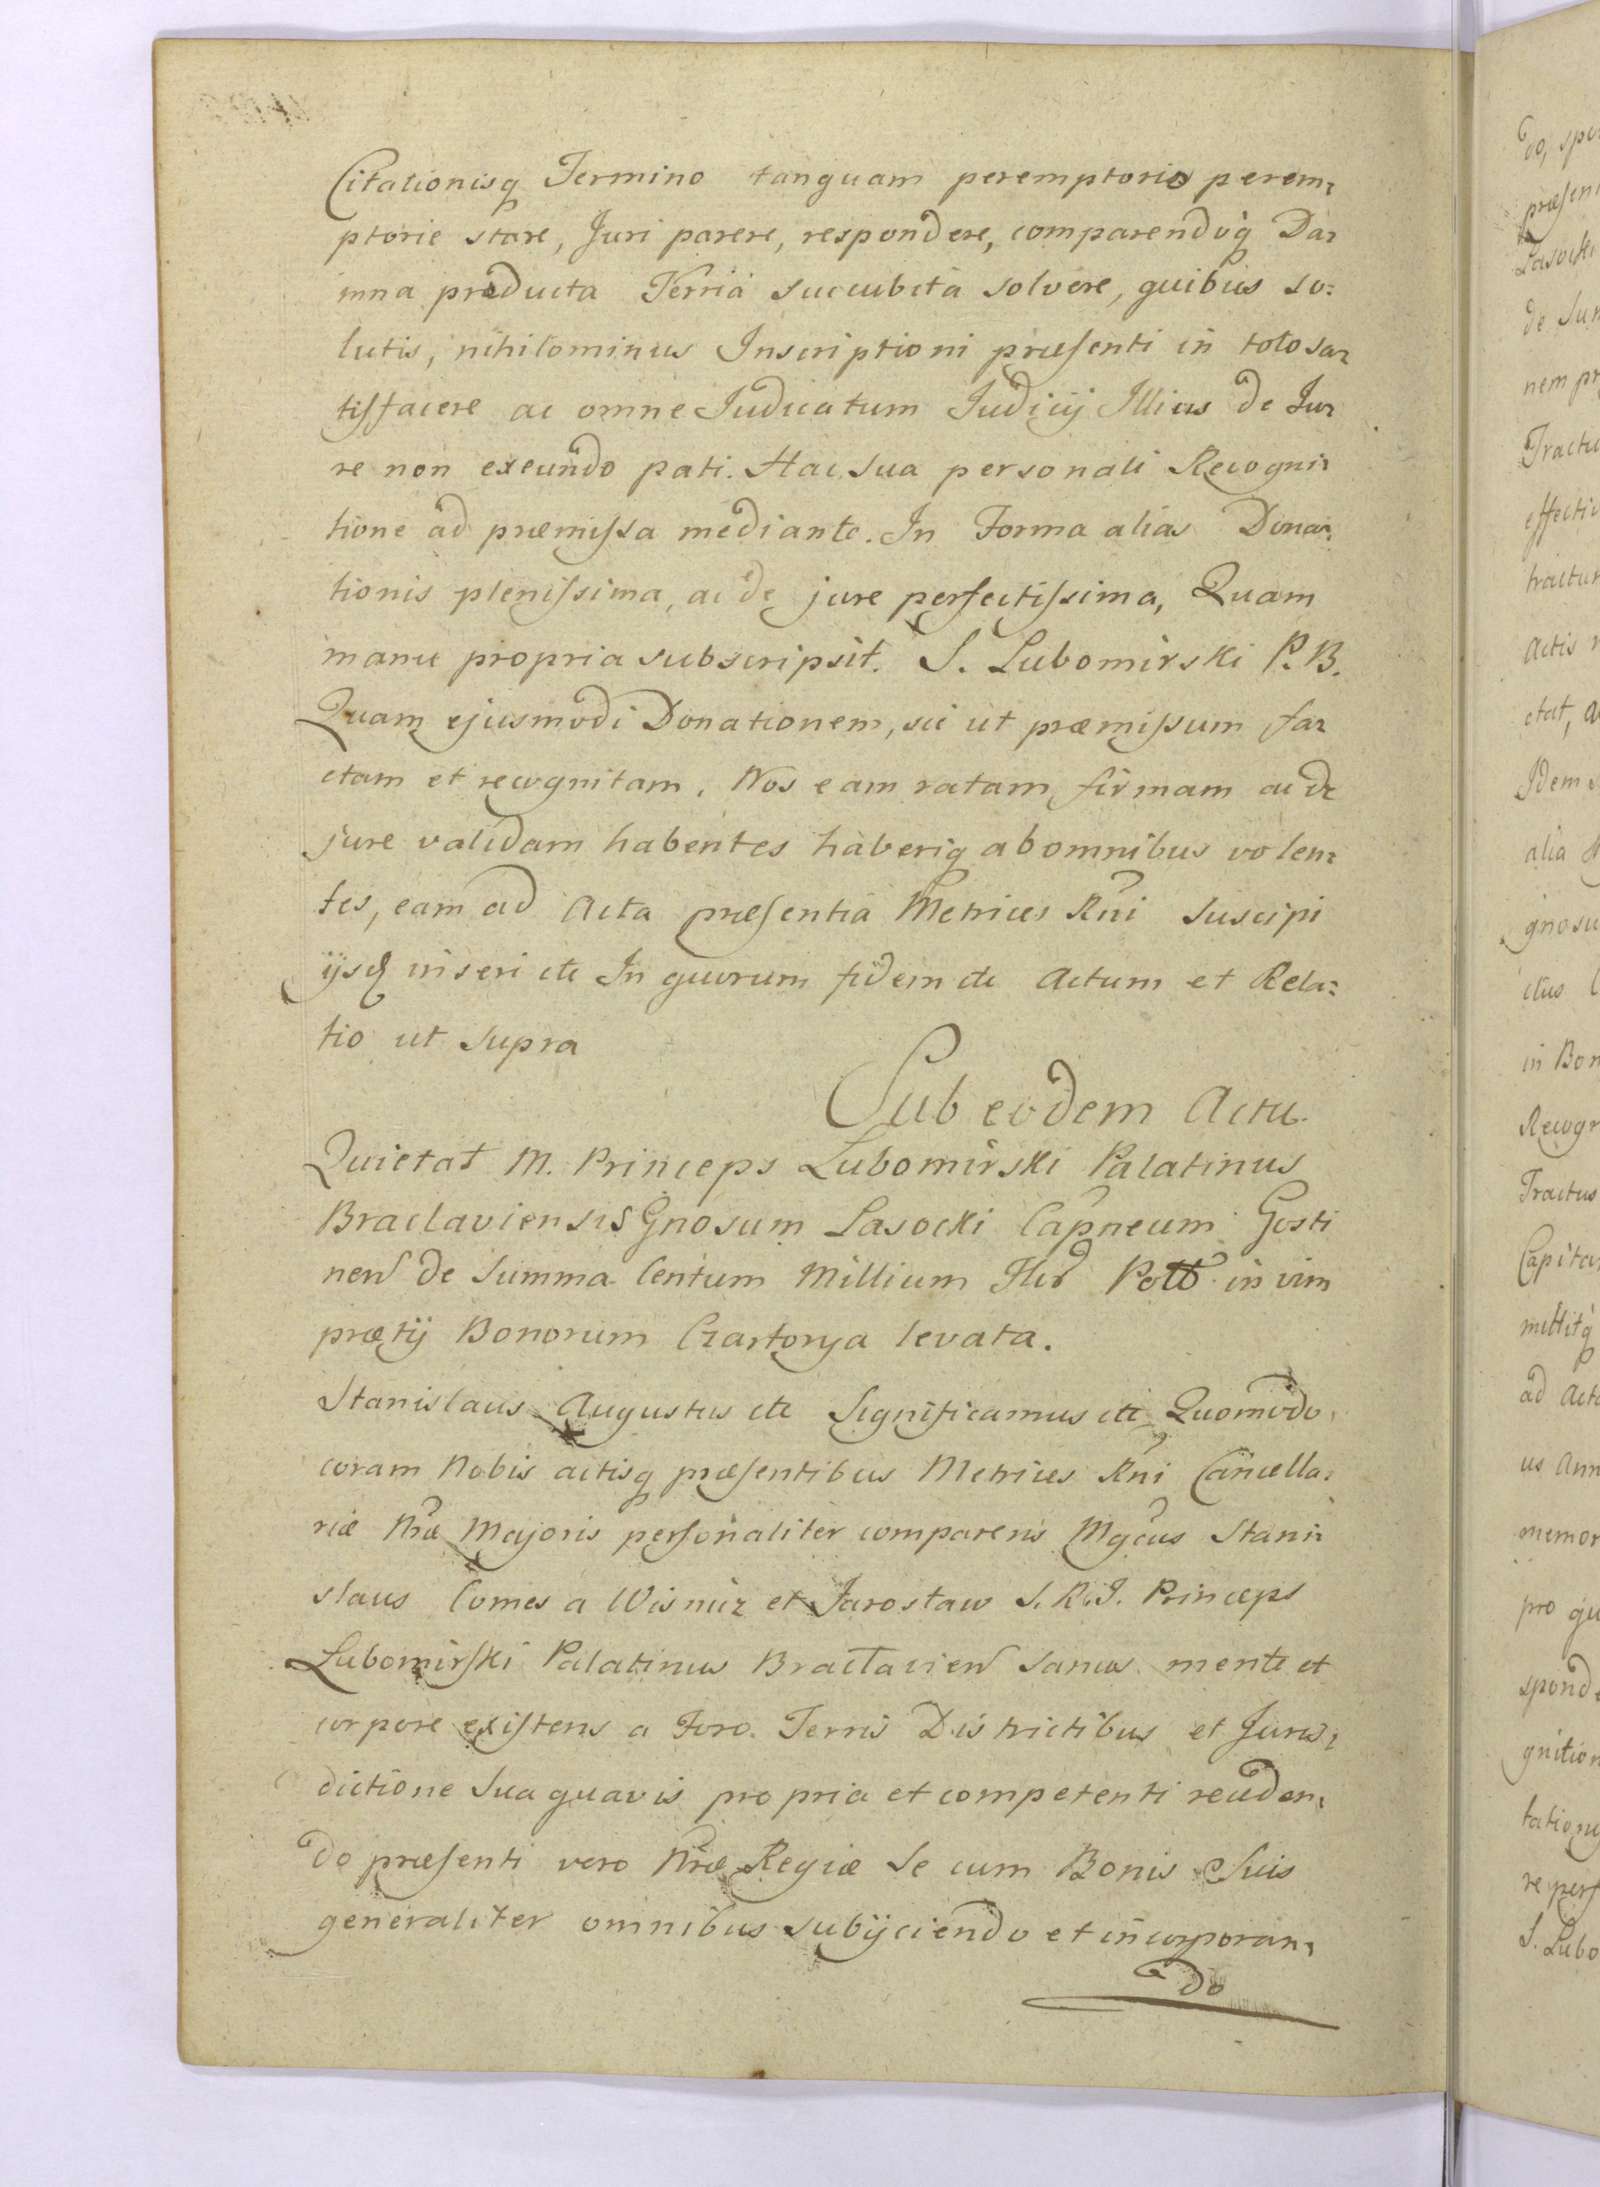 Citationisq Termino tanquam peremptorio perem:
ptorie stare, Juri parere, respondere, comparendoq Da:
mna producta Terria succubita solvere, quibus so:
lutis, nihilominus Inscriptioni præsenti in toto sa:
tisfacere ac omne Judicatum Judicij Illius de Ju:
re non exeundo pati. Hac sua personali Recogni:
tione ad præmissa mediante. In Forma alias Dona:
tionis plenissima, ac de jure perfectissima, Quam
manu propria subscripsit. S. Lubomirski P. B.
Quam ejusmodi Donationem, sic ut præmissum fa:
ctam et recognitam, Nos eam ratam, firmam ac de
jure validam habentes haberiq ab omnibus volen:
tes, eam ad Acta præsentia Metrices Rni suscipi
ijsq inseri etc In quorum fidem etc Actum et Rela:
tio ut supra
Sub eodem Actu.
Quietat M. Princeps Lubomirski Palatinus
Braclaviensis Gnosum Lasocki Capneum Gosti
nen de Summa Centum Millium Flor Poll in vim
prætij Bonorum Czartorya levata.
Stanislaus Augustus etc Significamus etc Quomodo
coram Nobis actisq præsentibus Metrices Rni Cancella:
riæ Nræ Majoris personaliter comparens Mgcus Stani:
slaus Comes a Wisnicz et Jarosław S. R. J. Princeps
Lubomirski Palatinus Bracłavien sanus mente et
corpore existens a Foro Terris Districtibus et Juris:
dictione sua quavis propria et competenti receden:
do præsenti vero Nræ Regiæ se cum Bonis Suis
generaliter omnibus subijciendo et incorporan:
do